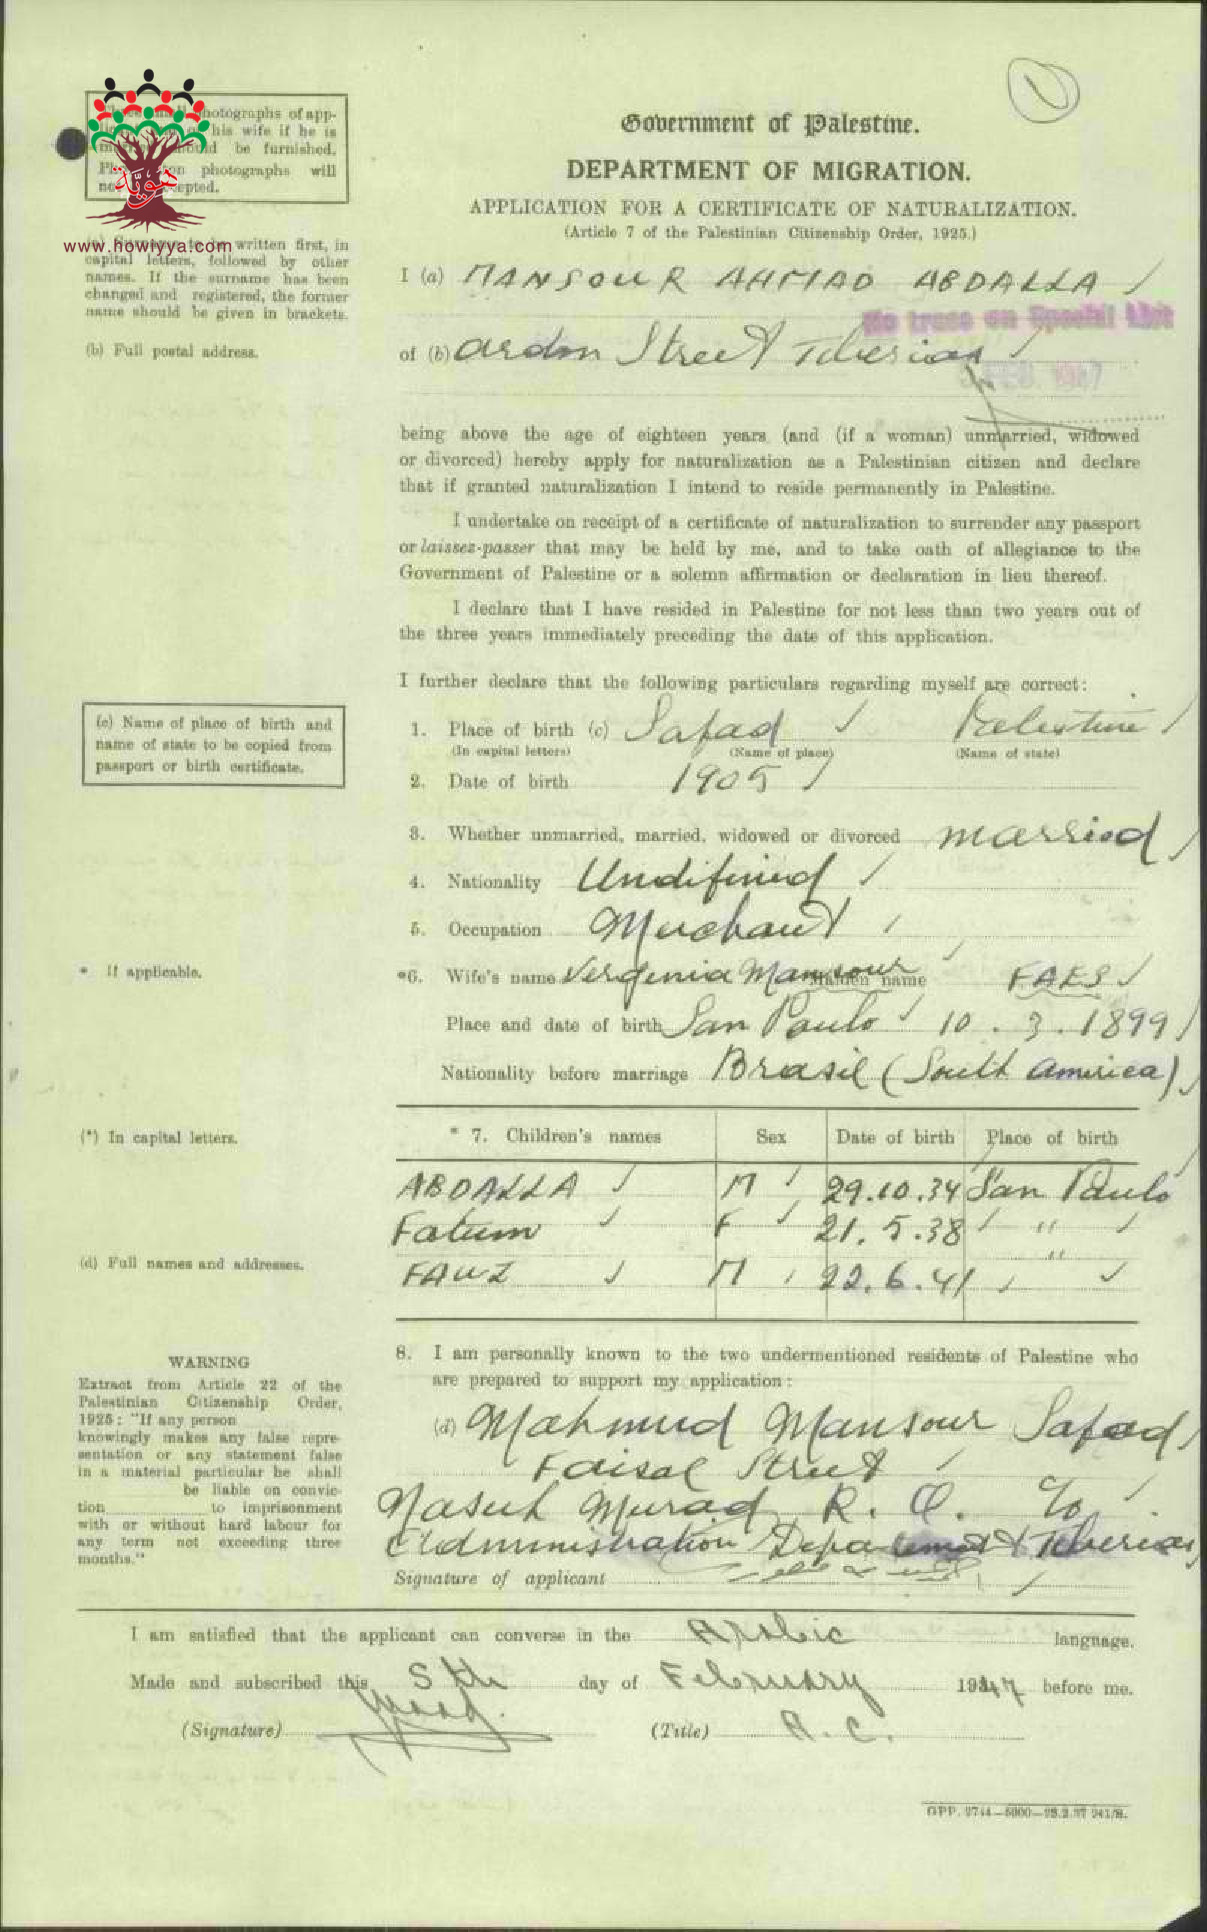 Government of Palestine.
DEPARTMENT OF MIGRATION.
APPLICATION FOR A CERTIFICATE OF NATURALIZATION.
(Article 7 of the Palestinian Citizenship Order, 1925.)
hotographs of app-
his wife if he is
be furnished.
photographs will
هوية
www.howiyya.com
written first, in
capital letters, followed by other
names. If the surname has been
changed and registered, the former
name should be given in brackets.
I (a) MANSOUR AHMAD ABDALLA
No trace on Special List
(b) Full postal address.
of (b) Ardon Street Tiberias
FEB. 1947
being above the age of eighteen years (and (if a woman) unmarried, widowed
or divorced) hereby apply for naturalization as a Palestinian citizen and declare
that if granted naturalization I intend to reside permanently in Palestine.
I undertake on receipt of a certificate of naturalization to surrender any passport
or laissez-passer that may be held by me, and to take oath of allegiance to the
Government of Palestine or a solemn affirmation or declaration in lieu thereof.
I declare that I have resided in Palestine for not less than two years out of
the three years immediately preceding the date of this application.
I further declare that the following particulars regarding myself are correct:
(c) Name of place of birth and
name of state to be copied from
passport or birth certificate.
1. Place of birth (c) Safad Palestine
(In capital letters) (Name of place) (Name of state)
2. Date of birth 1905
3. Whether unmarried, married, widowed or divorced married
4. Nationality Undifinied
5. Occupation Merchant
* If applicable.
*6. Wife's name Verginia Mansour Maiden name FAES
Place and date of birth San Paulo 10.3.1899
Nationality before marriage Brasil (South America)
(*) In capital letters.
* 7. Children's names Sex Date of birth Place of birth
ABDALLA M 29.10.34 San Paulo
Fatum F 21.5.38 "
FAUZ M 22.6.41 "
(d) Full names and addresses.
8. I am personally known to the two undermentioned residents of Palestine who
are prepared to support my application:
(d) Mahmud Mansour Safad
Faisal Street
Nasuh Murad R. O. c/o
Administration Department Tiberias
Signature of applicant
WARNING
Extract from Article 22 of the
Palestinian Citizenship Order,
1925: "If any person
knowingly makes any false repre-
sentation or any statement false
in a material particular he shall
be liable on convic-
tion to imprisonment
with or without hard labour for
any term not exceeding three
months."
I am satisfied that the applicant can converse in the Arabic language.
Made and subscribed this 5th day of February 1947 before me.
(Signature) (Title) A. C.
GPP. 2744—5000—23.2.37 241/S.